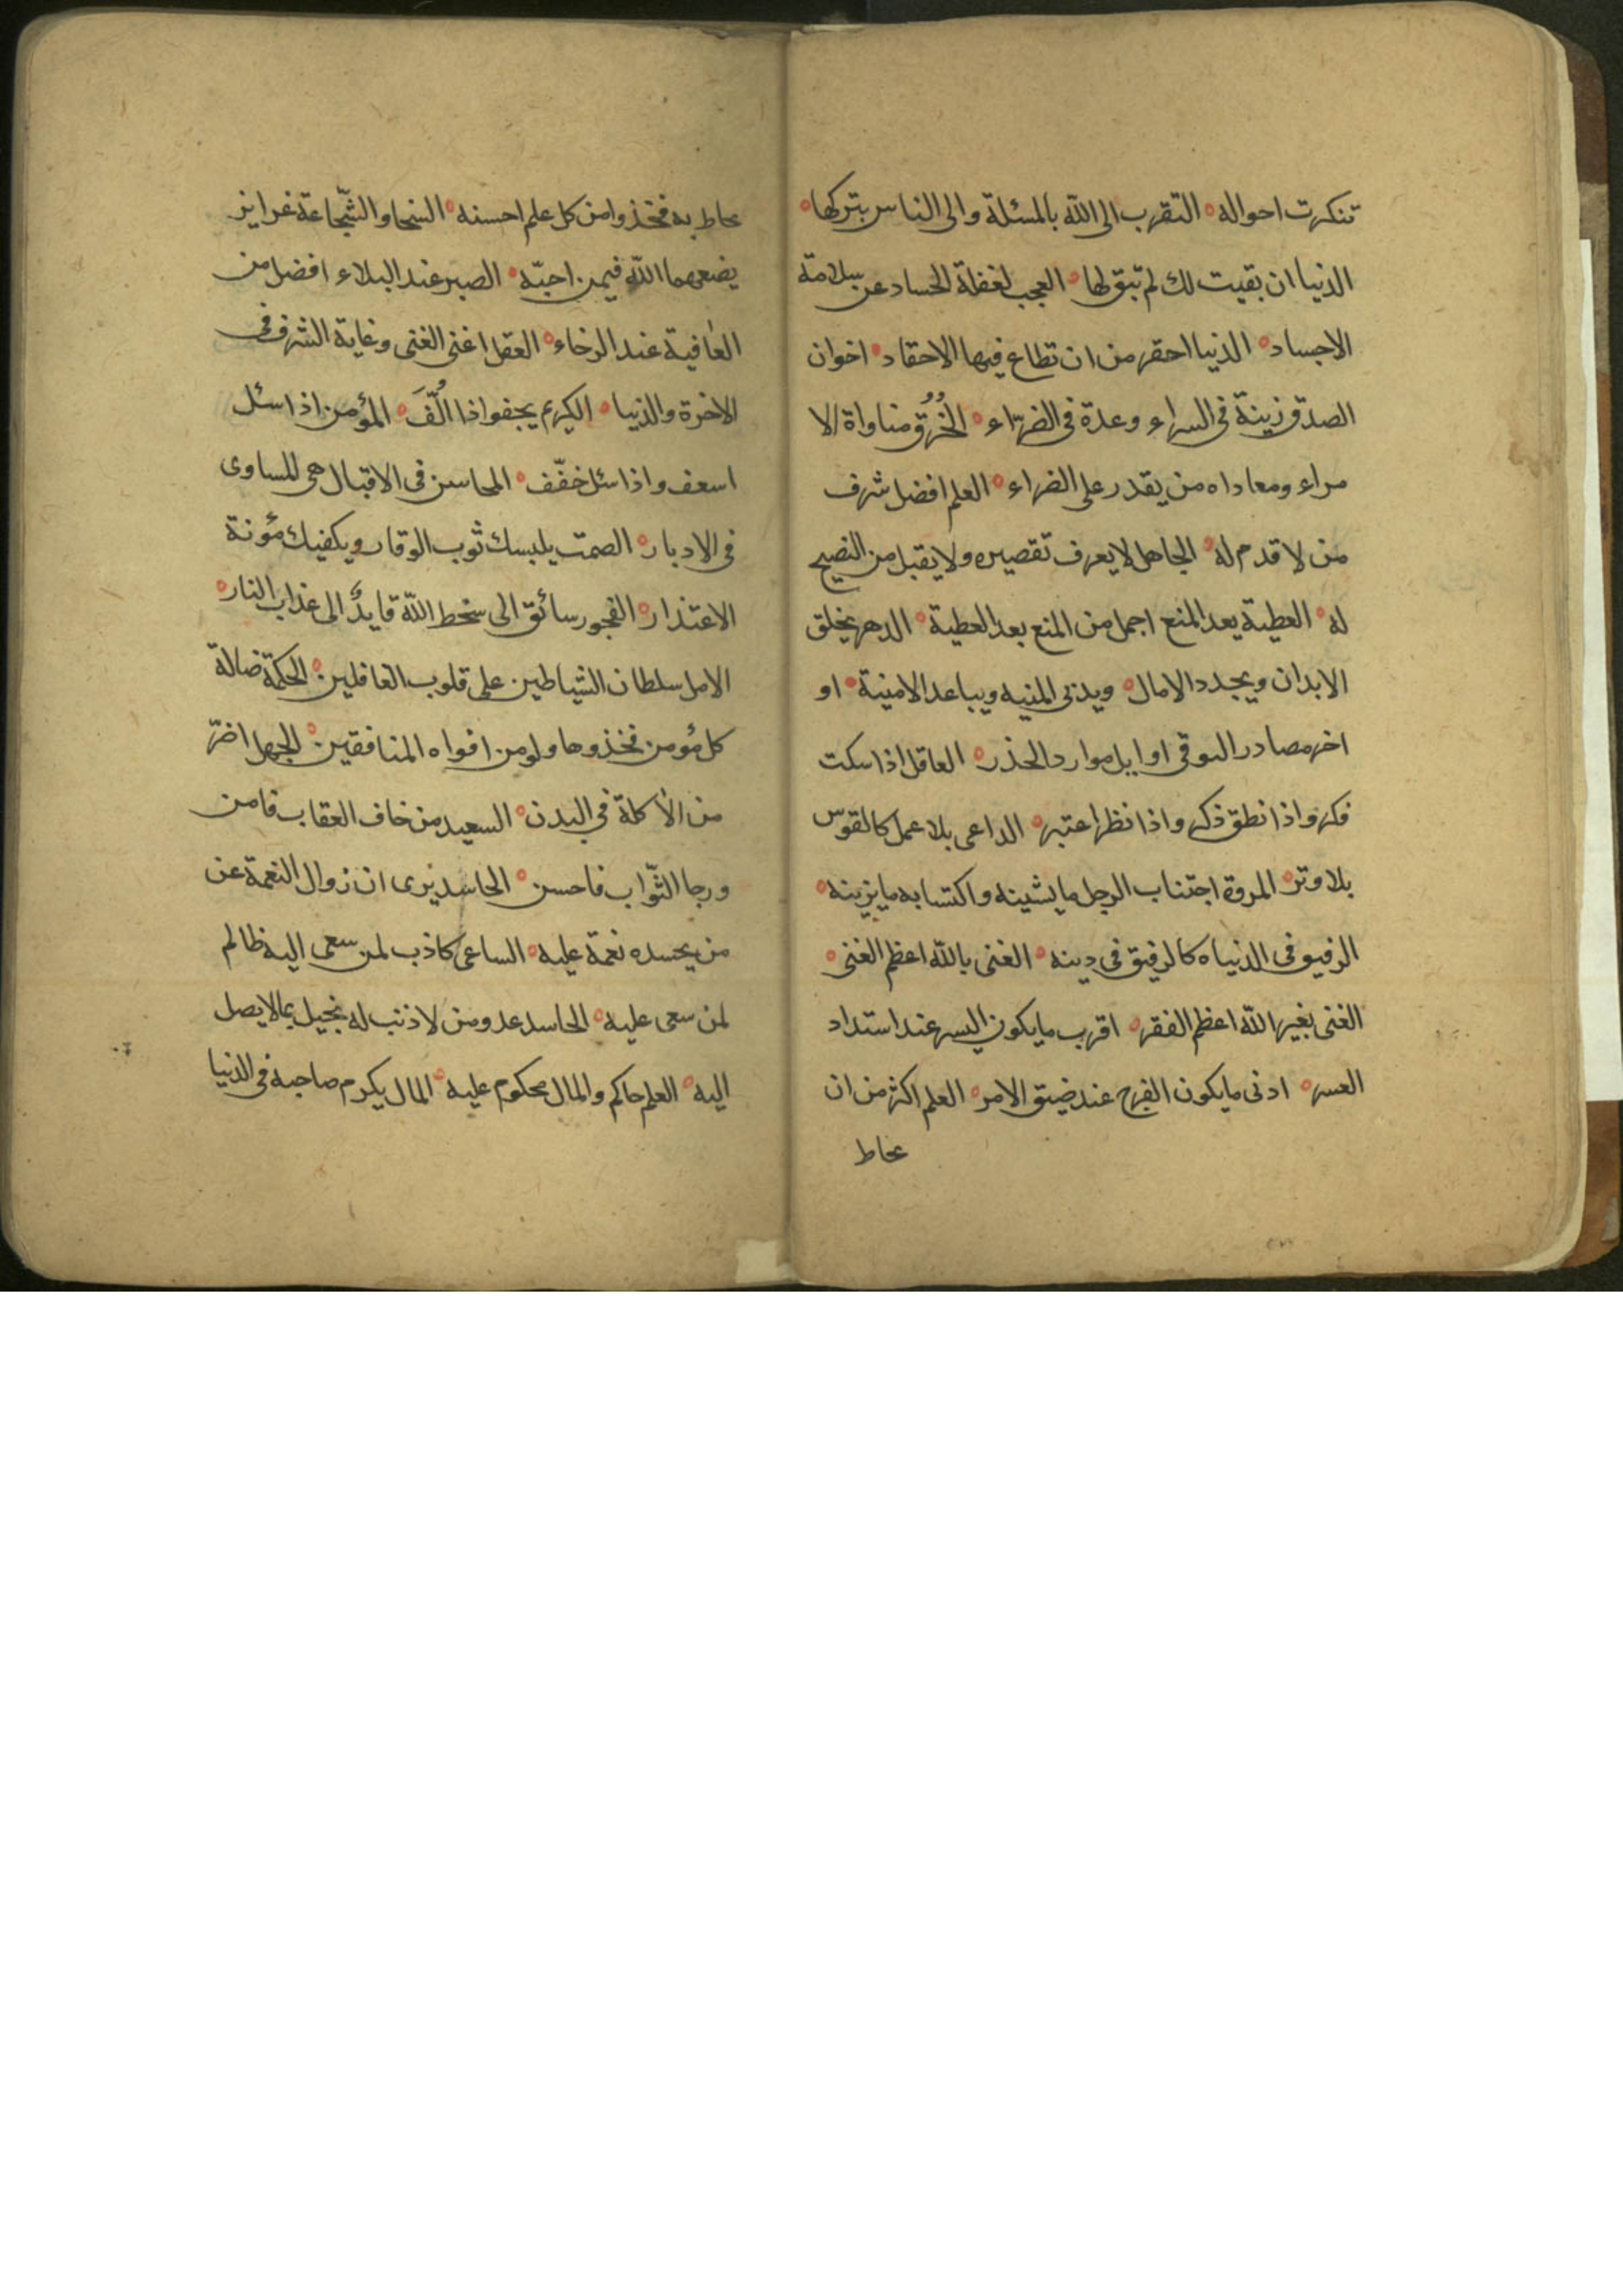 تنكرت احواله ه التقرب الى الله بالمسئلة والى الناس بتركها ه
الدنيا ان بقيت لك لم تبق لها ه العجب لغفلة الحساد عن سلامة
الاجساد ه الدنيا احقر من ان تطاع فيها الاحقاد ه اخوان
الصدق زينة فى السراء وعدة فى الضرّاء ه الخُرُق مناواة الا
مراء ومعاداه من يقدر على الضراء ه العلم افضل شرف
من لا قدم له ه الجاهل لا يعرف تقصيره ولا يقبل من النصيح
له ه العطية بعد المنع اجمل من المنع بعد العطية ه الدهر يخلق
الابدان ويجدد الامال ه ويدنى المنيه ويباعد الامنية ه او
اخر مصادر التوقى اوايل موارد الحذر ه العاقل اذا سكت
فكر واذا نطق ذكر واذا نظر اعتبر ه الداعى بلا عمل كالقوس
بلا وتر ه المروة اجتناب الرجل ما يشينه واكتسابه ما يزينه ه
الرفيق فى الدنياه كالرفيق فى دينه ه الغنى بالله اعظم الغنى ه
الغنى بغير الله اعظم الفقر ه اقرب ما يكون اليسر عند استداد
العسر ه ادنى ما يكون الفرج عند ضيق الامر ه العلم اكثر من ان
يحاط
يحاط به فخذوا من كل علم احسنه ه السخا والشّجاعة غرايز
يضعهما الله فيمن احبّه ه الصبر عند البلاء افضل من
العافية عند الرخاء ه العقل اغنى الغنى وغاية الشرف فى
الاخرة والدنيا ه الكريم يجفوا اذا الُّفَ ه المؤمن اذا سئل
اسعف واذا سئل خفّف ه المحاسن فى الاقبال هى المساوى
فى الادبار ه الصمت يلبسك ثوب الوقار ويكفيك مؤنة
الاعتذار ه الفجور سائق الى سخط الله قايدٌ الى عذاب النار ه
الامل سلطان الشياطين على قلوب الغافلين ه الحكمة ضالة
كل مؤمن فخذوها ولو من افواه المنافقين ه الجهل اضرّ
من الأكلة فى البدن ه السعيد من خاف العقاب فامن
ورجا الثّواب فاحسن ه الحاسد يرى ان زوال النعمة عن
من يحسده نعمة عليه ه الساعى كاذب لمن سعى اليه ظالم
لمن سعى عليه ه الحاسد عدو من لا ذنب له بخيل بما لا يصل
اليه ه العلم حاكم والمال محكوم عليه ه المال يكرم صاحبه فى الدنيا